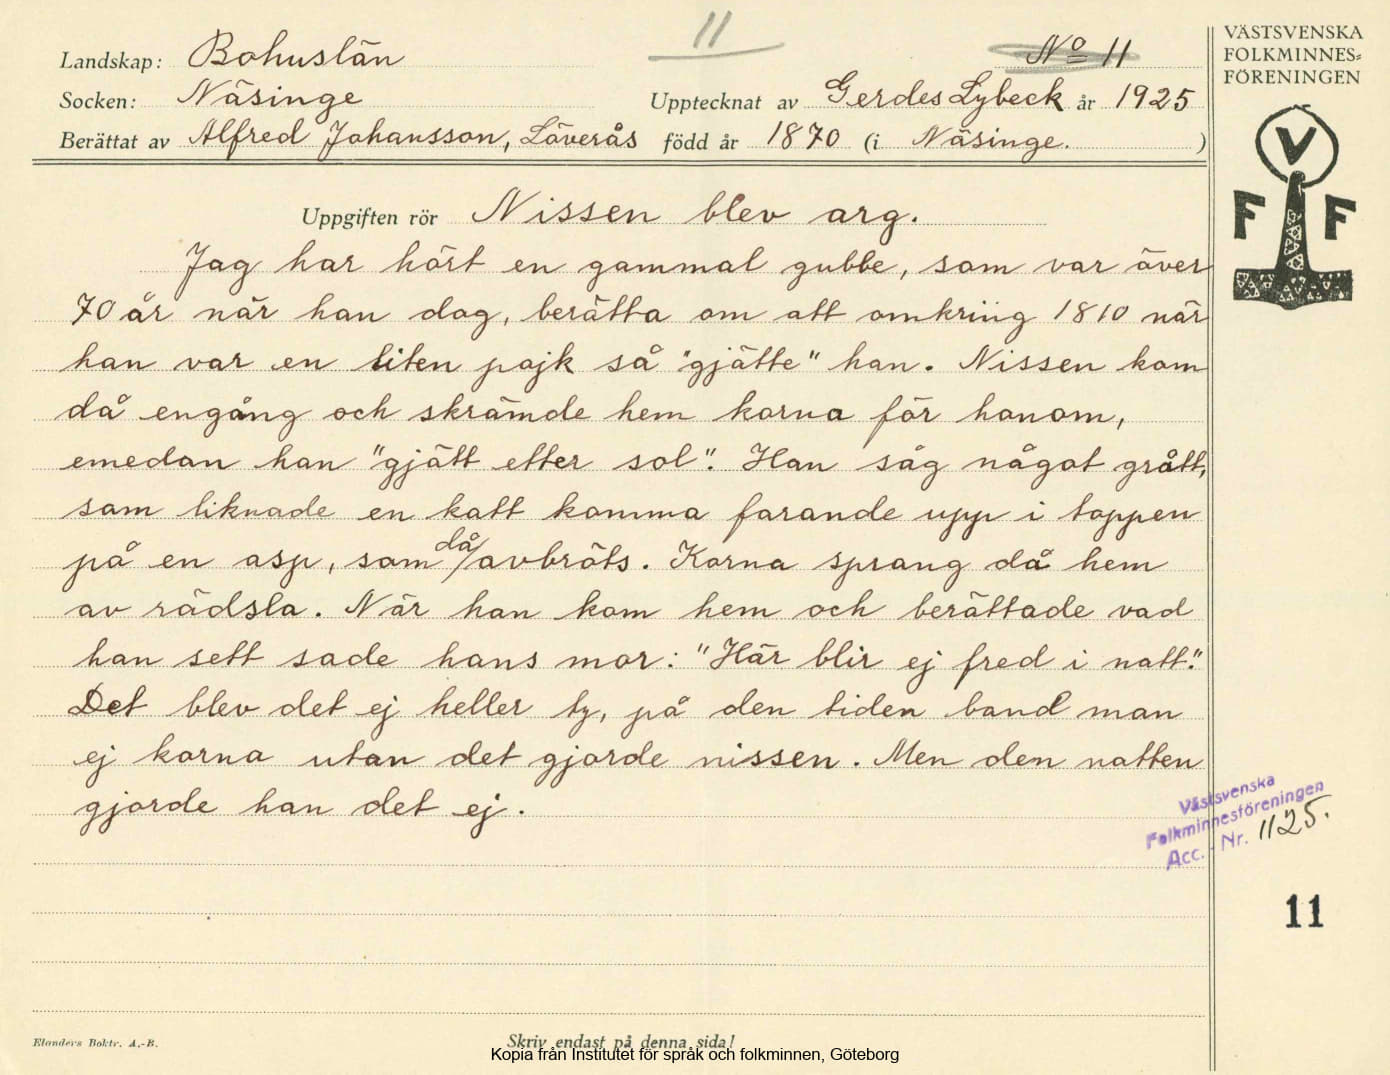 11
Landskap: Bohuslän
No 11
Socken: Näsinge
Upptecknat av Gerdes Lybeck år 1925
Berättat av Alfred Johansson, Löverås född år 1870 (i Näsinge. )
VÄSTSVENSKA
FOLKMINNES=
FÖRENINGEN
V
F F
Uppgiften rör Nissen blev arg.
Jag har hört en gammal gubbe, som var över
70 år när han dog, berätta om att omkring 1810 när
han var en liten pojk så "gjätte" han. Nissen kom
då engång och skrämde hem korna för honom,
emedan han "gjätt etter sol". Han såg något grått,
som liknade en katt komma farande upp i toppen
på en asp, som då avbröts. Korna sprang då hem
av rädsla. När han kom hem och berättade vad
han sett sade hans mor: "Här blir ej fred i natt."
Det blev det ej heller ty, på den tiden band man
ej korna utan det gjorde nissen. Men den natten
gjorde han det ej.
Västsvenska
Folkminnesföreningen
Acc. Nr. 1125.
11
Elanders Boktr. A.-B.
Skriv endast på denna sida!
Kopia från Institutet för språk och folkminnen, Göteborg